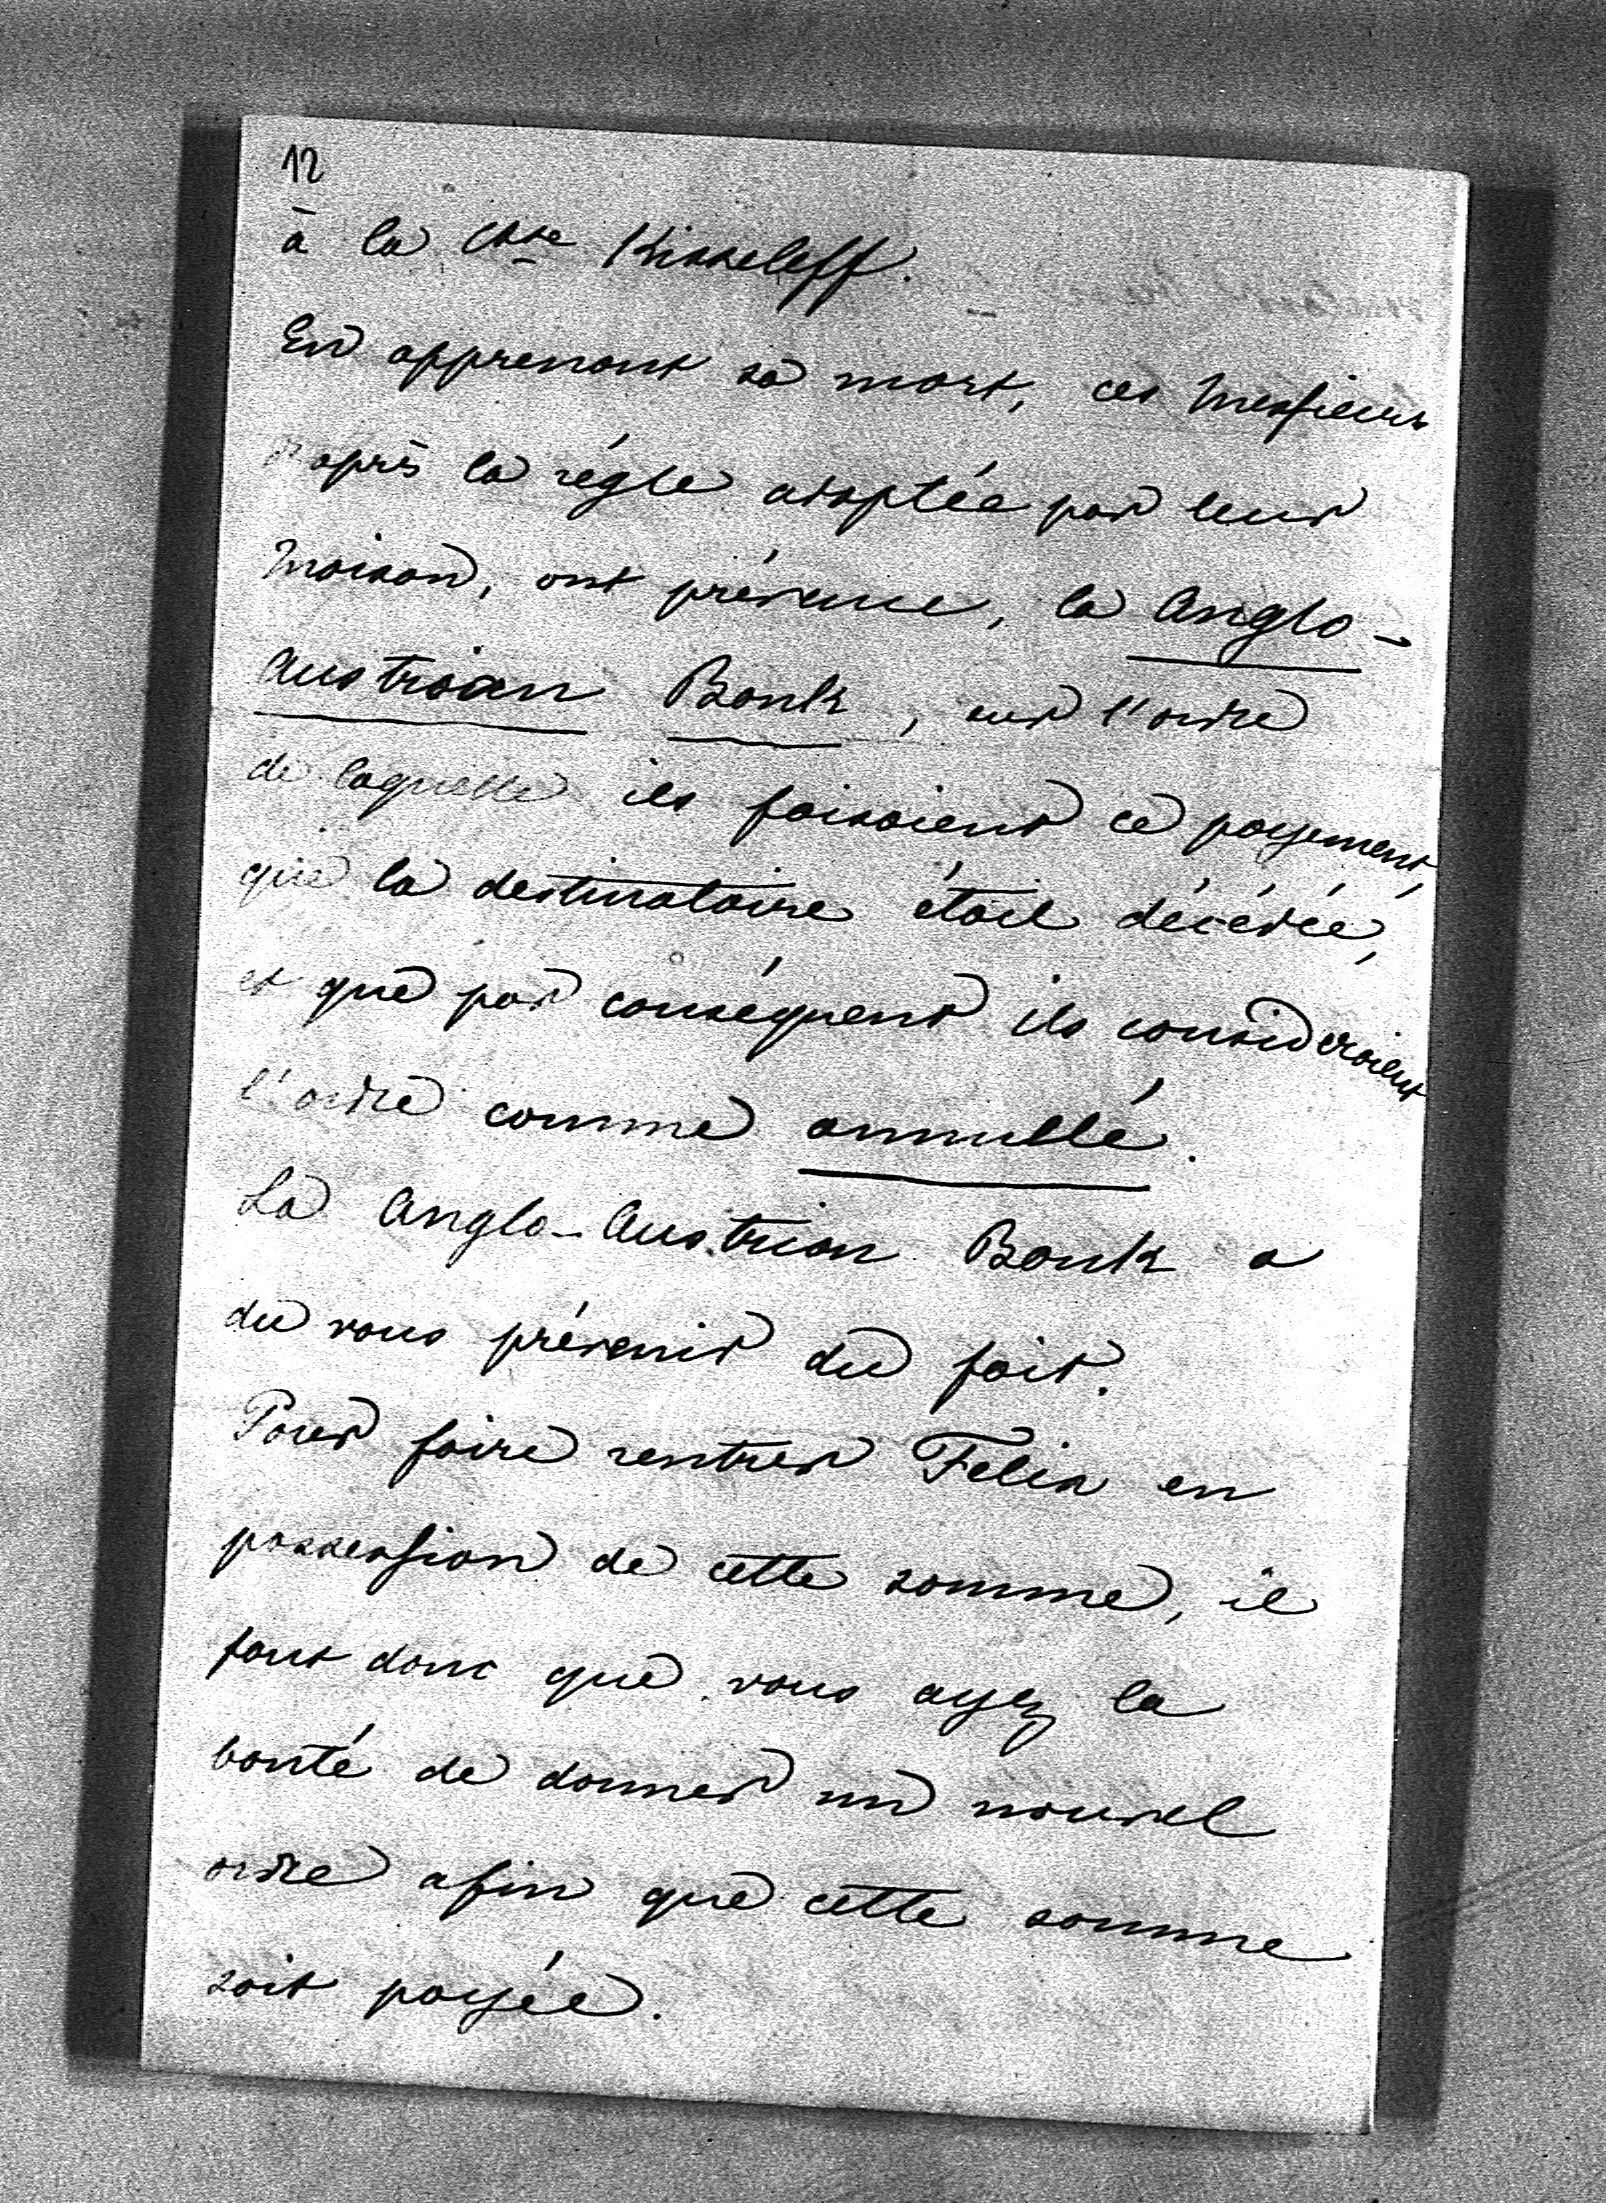 12
à la Ctsse Kisseleff.
En apprenant sa mort, ces Messieurs
d'après la régle adoptée par leur
Maison, ont prévenue, la Anglo-
Austrian Bank, sur l'ordre
de laquelle ils faisaient ce payement,
que la destinataire était décédée,
et que par conséquent ils consideraient
l'ordre comme annullé.
La Anglo-Austrian Bank a
du vous prévenir du fait.
Pour faire rentrer Felix en
possession de cette somme, il
faut donc que vous ayez la
bonté de donner un nouvel
ordre afin que cette somme
soit payée.